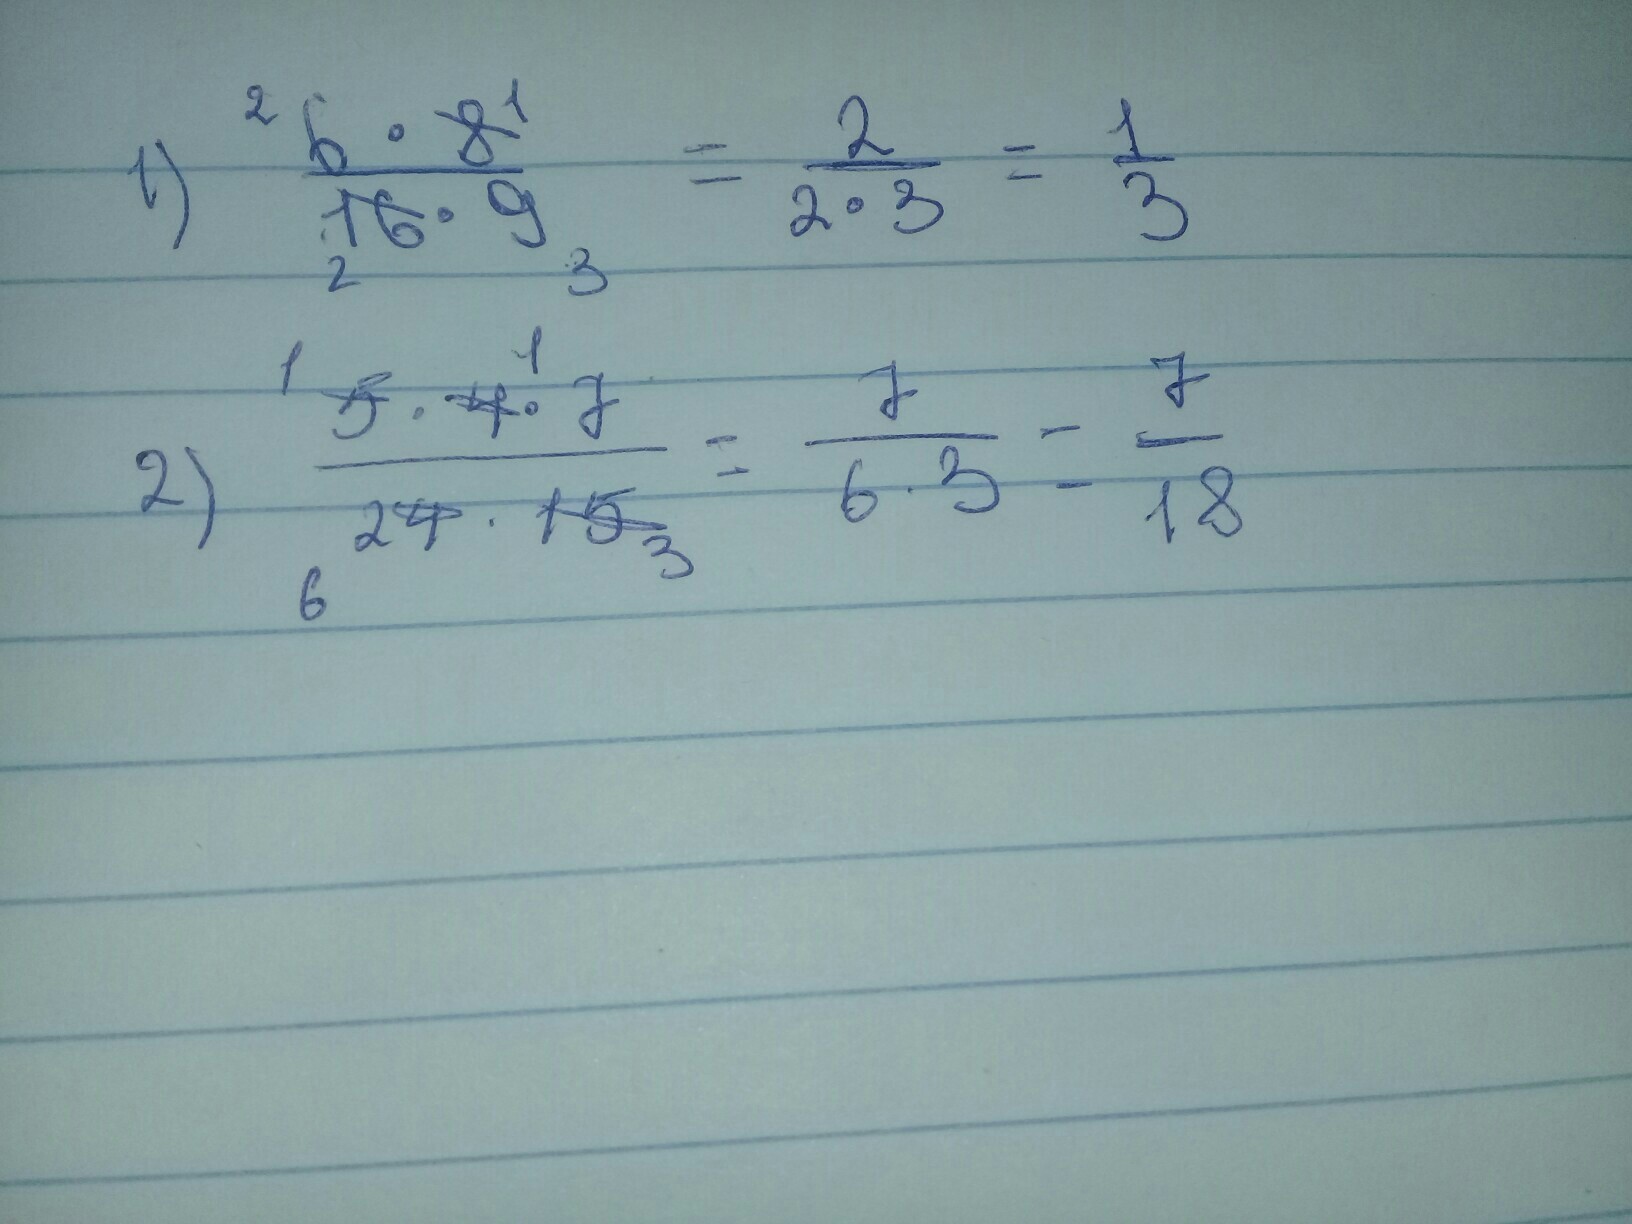 1) ²6 · 8¹ / 16₂ · 9₃ = 2 / 2 · 3 = 1 / 3
2) ¹5 · 4¹ · 7 / ₆24 · 15₃ = 7 / 6 · 3 = 7 / 18